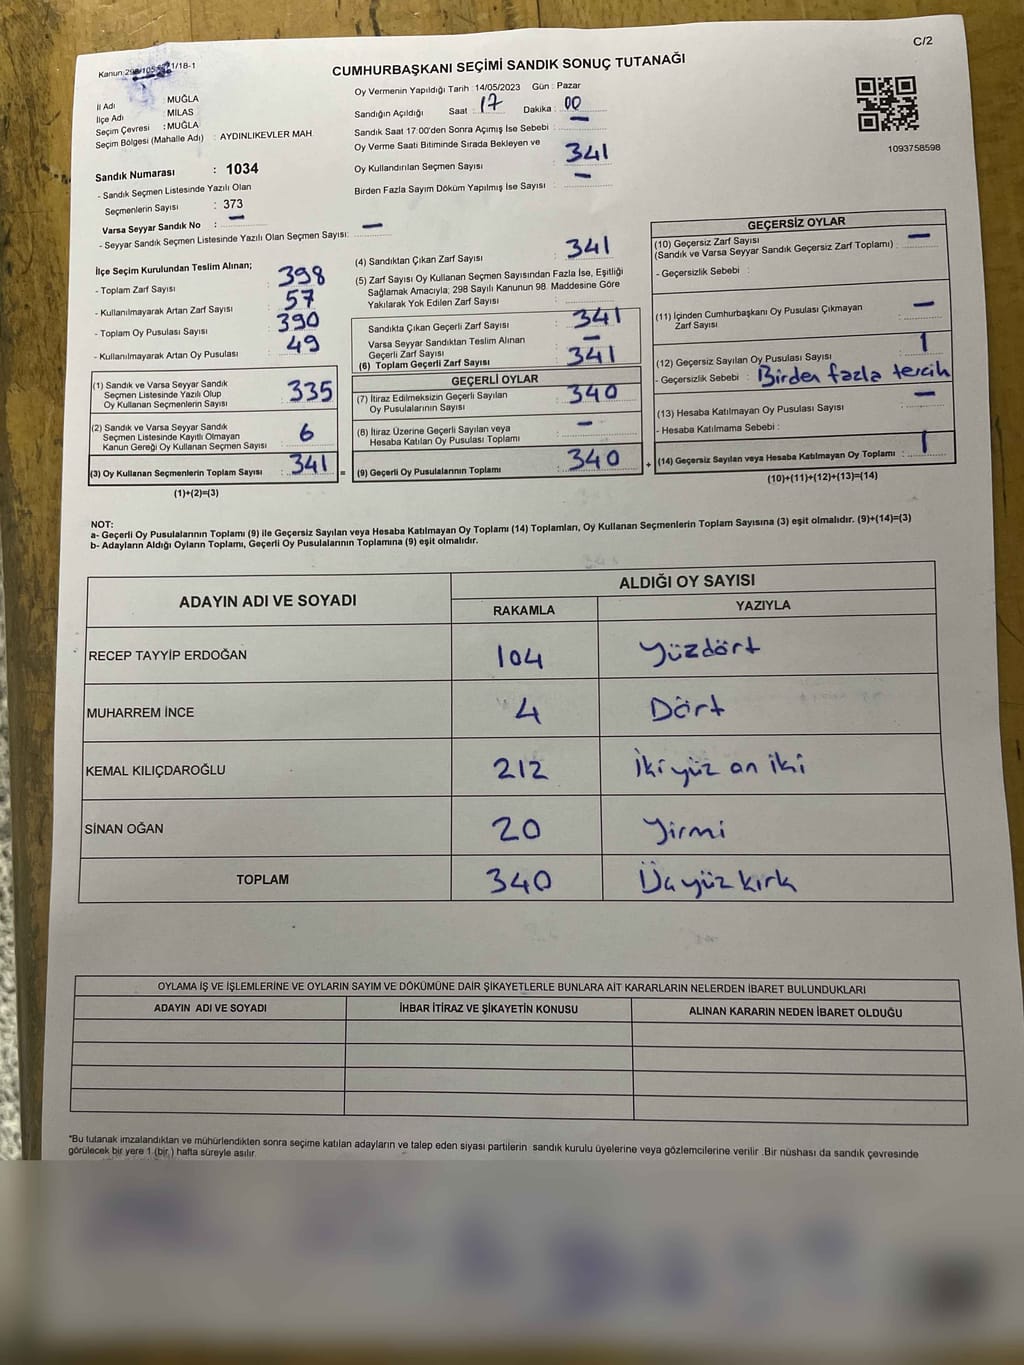 C/2
Kanun:298/105 1/18-1
CUMHURBAŞKANI SEÇİMİ SANDIK SONUÇ TUTANAĞI
İl Adı : MUĞLA
İlçe Adı : MİLAS
Seçim Çevresi : MUĞLA
Seçim Bölgesi (Mahalle Adı) : AYDINLIKEVLER MAH
Sandık Numarası : 1034
- Sandık Seçmen Listesinde Yazılı Olan
Seçmenlerin Sayısı : 373
Varsa Seyyar Sandık No : –
- Seyyar Sandık Seçmen Listesinde Yazılı Olan Seçmen Sayısı: –
Oy Vermenin Yapıldığı Tarih : 14/05/2023 Gün : Pazar
Sandığın Açıldığı Saat : 17 Dakika : 00
Sandık Saat 17:00'den Sonra Açımış İse Sebebi : –
Oy Verme Saati Bitiminde Sırada Bekleyen ve
Oy Kullandırılan Seçmen Sayısı : 341
Birden Fazla Sayım Döküm Yapılmış İse Sayısı : –
1093758598
İlçe Seçim Kurulundan Teslim Alınan;
- Toplam Zarf Sayısı : 398
- Kullanılmayarak Artan Zarf Sayısı : 57
- Toplam Oy Pusulası Sayısı : 390
- Kullanılmayarak Artan Oy Pusulası : 49
(1) Sandık ve Varsa Seyyar Sandık
Seçmen Listesinde Yazılı Olup
Oy Kullanan Seçmenlerin Sayısı : 335
(2) Sandık ve Varsa Seyyar Sandık
Seçmen Listesinde Kayıtlı Olmayan
Kanun Gereği Oy Kullanan Seçmen Sayısı : 6
(3) Oy Kullanan Seçmenlerin Toplam Sayısı : 341 =
(1)+(2)=(3)
(4) Sandıktan Çıkan Zarf Sayısı : 341
(5) Zarf Sayısı Oy Kullanan Seçmen Sayısından Fazla İse, Eşitliği
Sağlamak Amacıyla; 298 Sayılı Kanunun 98. Maddesine Göre
Yakılarak Yok Edilen Zarf Sayısı :
Sandıkta Çıkan Geçerli Zarf Sayısı : 341
Varsa Seyyar Sandıktan Teslim Alınan
Geçerli Zarf Sayısı : –
(6) Toplam Geçerli Zarf Sayısı : 341
GEÇERLİ OYLAR
(7) İtiraz Edilmeksizin Geçerli Sayılan
Oy Pusulalarının Sayısı : 340
(8) İtiraz Üzerine Geçerli Sayılan veya
Hesaba Katılan Oy Pusulası Toplamı : –
(9) Geçerli Oy Pusulalarının Toplamı : 340 +
GEÇERSİZ OYLAR
(10) Geçersiz Zarf Sayısı
(Sandık ve Varsa Seyyar Sandık Geçersiz Zarf Toplamı) : –
- Geçersizlik Sebebi :
(11) İçinden Cumhurbaşkanı Oy Pusulası Çıkmayan
Zarf Sayısı : –
(12) Geçersiz Sayılan Oy Pusulası Sayısı : 1
- Geçersizlik Sebebi : Birden fazla tercih
(13) Hesaba Katılmayan Oy Pusulası Sayısı : –
- Hesaba Katılmama Sebebi :
(14) Geçersiz Sayılan veya Hesaba Katılmayan Oy Toplamı : 1
(10)+(11)+(12)+(13)=(14)
NOT:
a- Geçerli Oy Pusulalarının Toplamı (9) ile Geçersiz Sayılan veya Hesaba Katılmayan Oy Toplamı (14) Toplamları, Oy Kullanan Seçmenlerin Toplam Sayısına (3) eşit olmalıdır. (9)+(14)=(3)
b- Adayların Aldığı Oyların Toplamı, Geçerli Oy Pusulalarının Toplamına (9) eşit olmalıdır.
ADAYIN ADI VE SOYADI
ALDIĞI OY SAYISI
RAKAMLA YAZIYLA
RECEP TAYYİP ERDOĞAN 104 Yüzdört
MUHARREM İNCE 4 Dört
KEMAL KILIÇDAROĞLU 212 İkiyüz on iki
SİNAN OĞAN 20 Yirmi
TOPLAM 340 Üçyüz kırk
OYLAMA İŞ VE İŞLEMLERİNE VE OYLARIN SAYIM VE DÖKÜMÜNE DAİR ŞİKAYETLERLE BUNLARA AİT KARARLARIN NELERDEN İBARET BULUNDUKLARI
ADAYIN ADI VE SOYADI İHBAR İTİRAZ VE ŞİKAYETİN KONUSU ALINAN KARARIN NEDEN İBARET OLDUĞU
*Bu tutanak imzalandıktan ve mühürlendikten sonra seçime katılan adayların ve talep eden siyasi partilerin sandık kurulu üyelerine veya gözlemcilerine verilir .Bir nüshası da sandık çevresinde
görülecek bir yere 1 (bir ) hafta süreyle asılır.